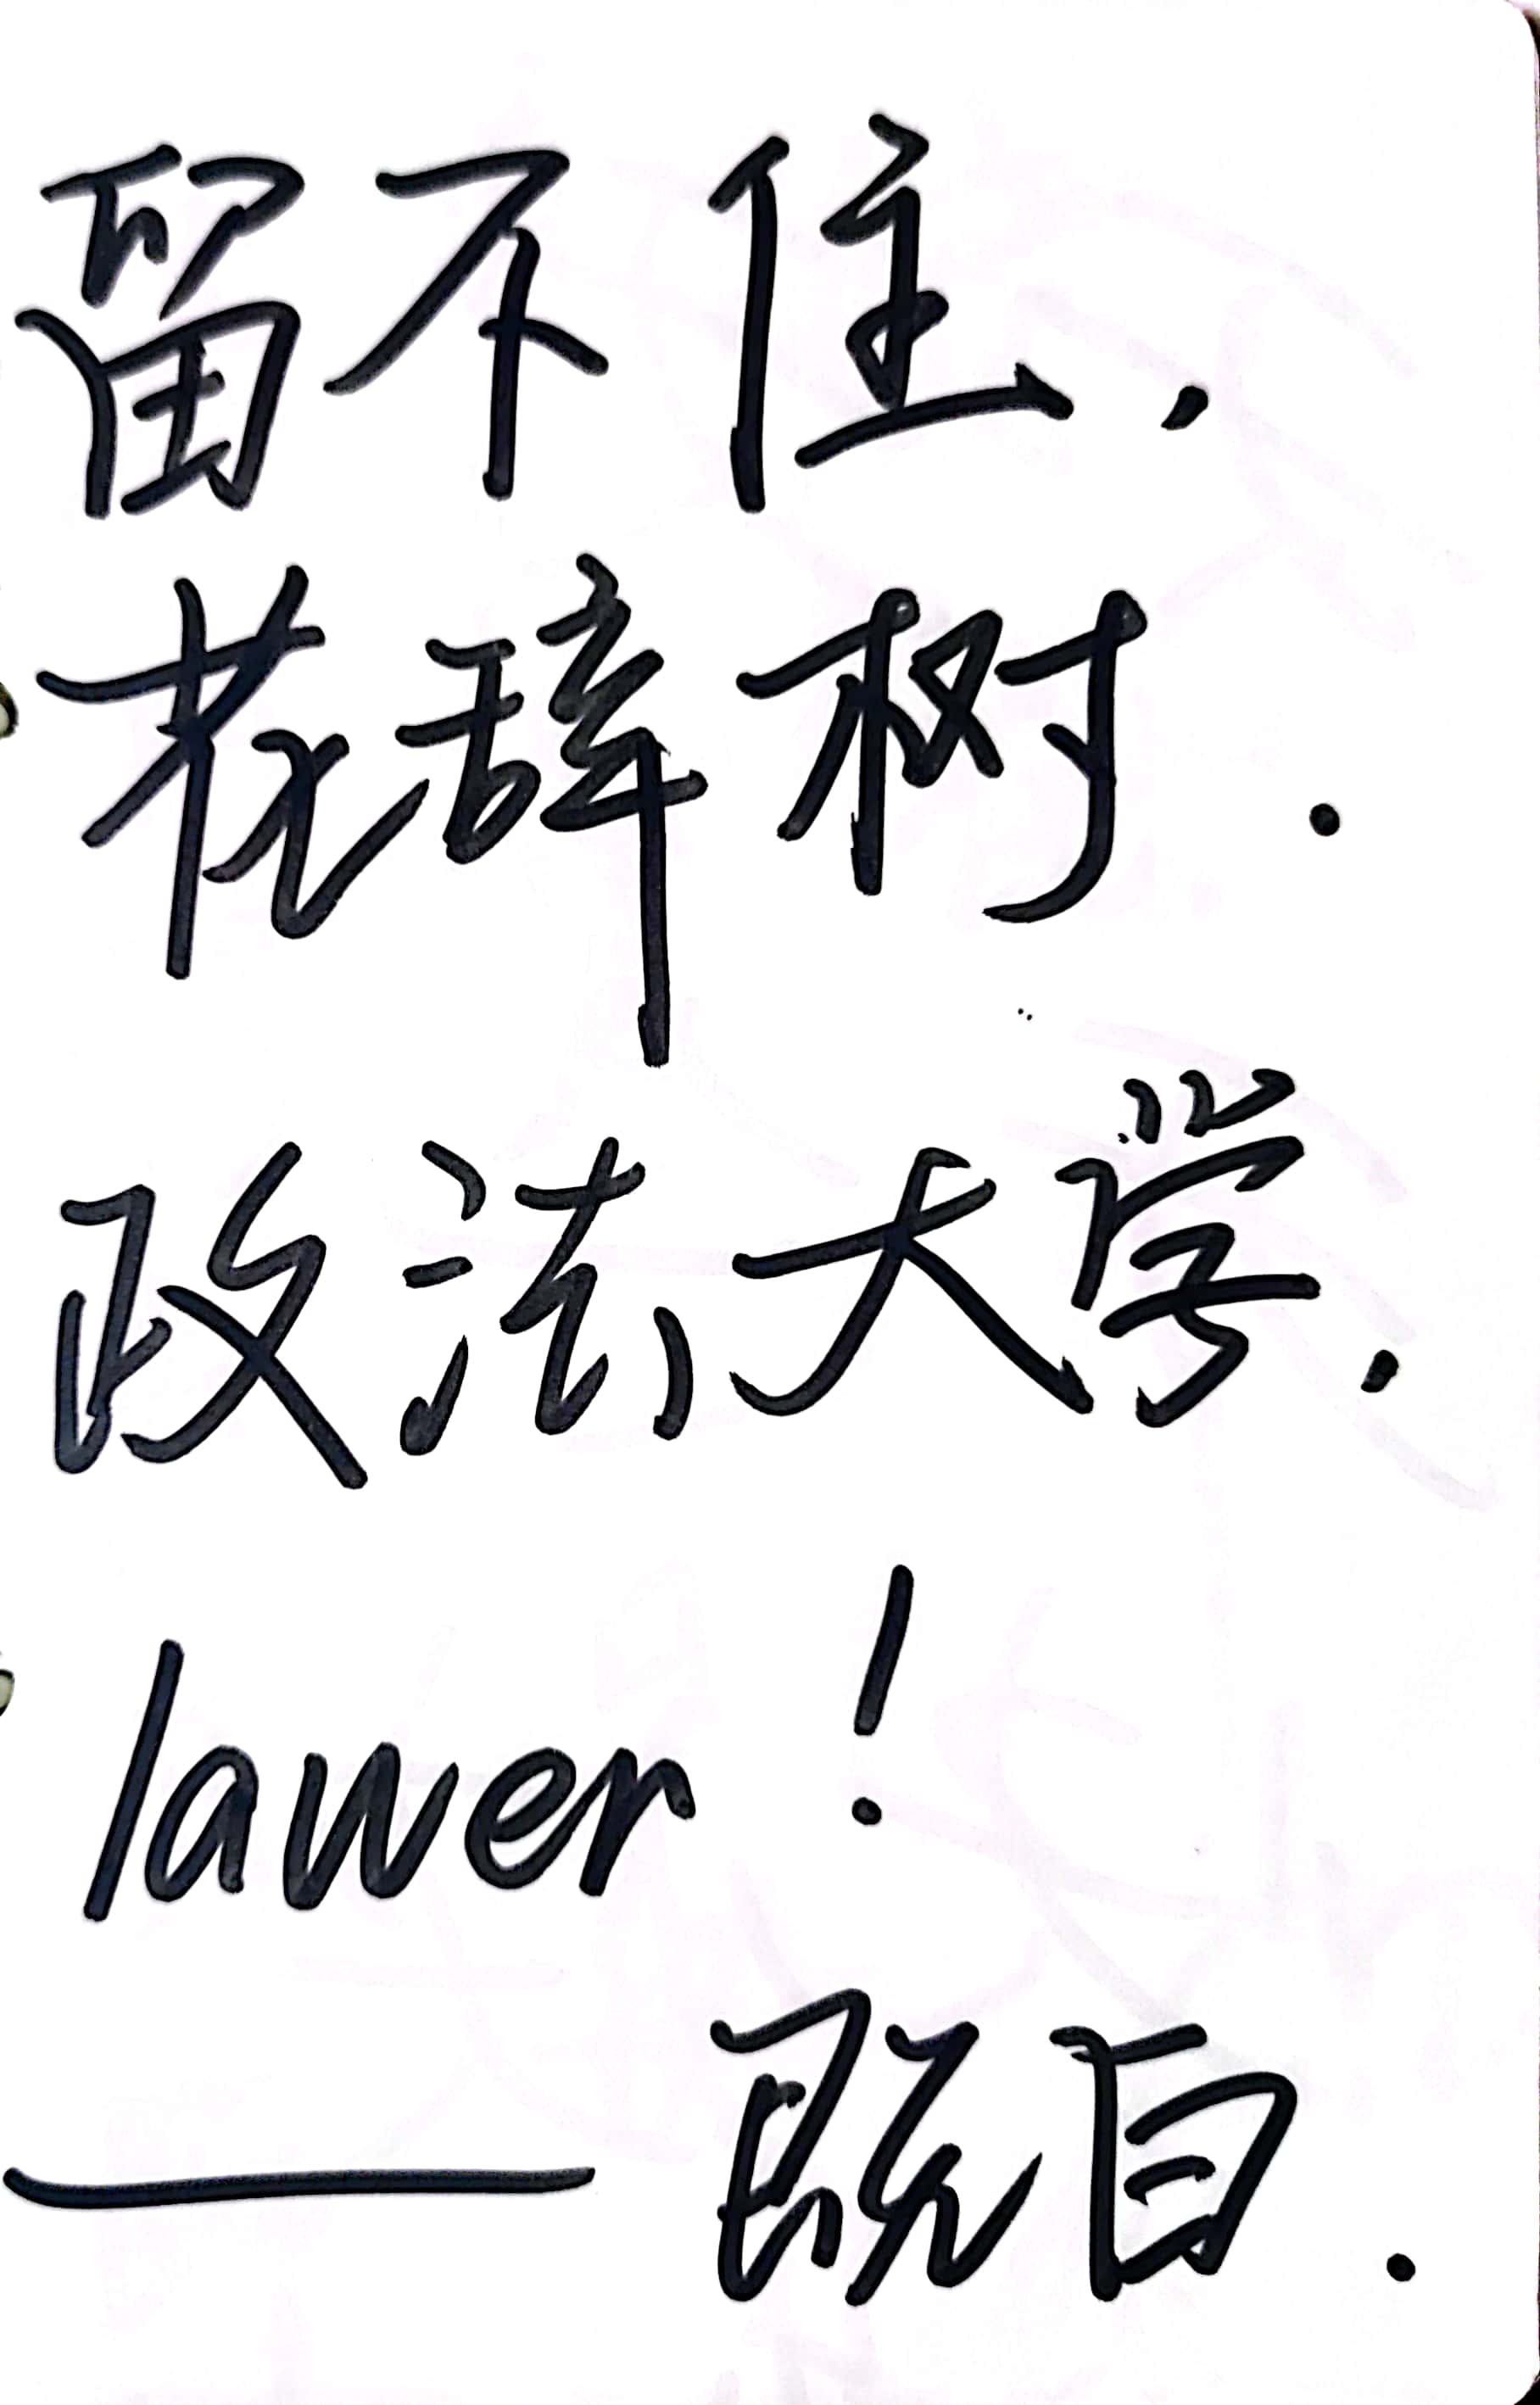 留不住,
花辞树.
政法大学.
lawer!
——既白.